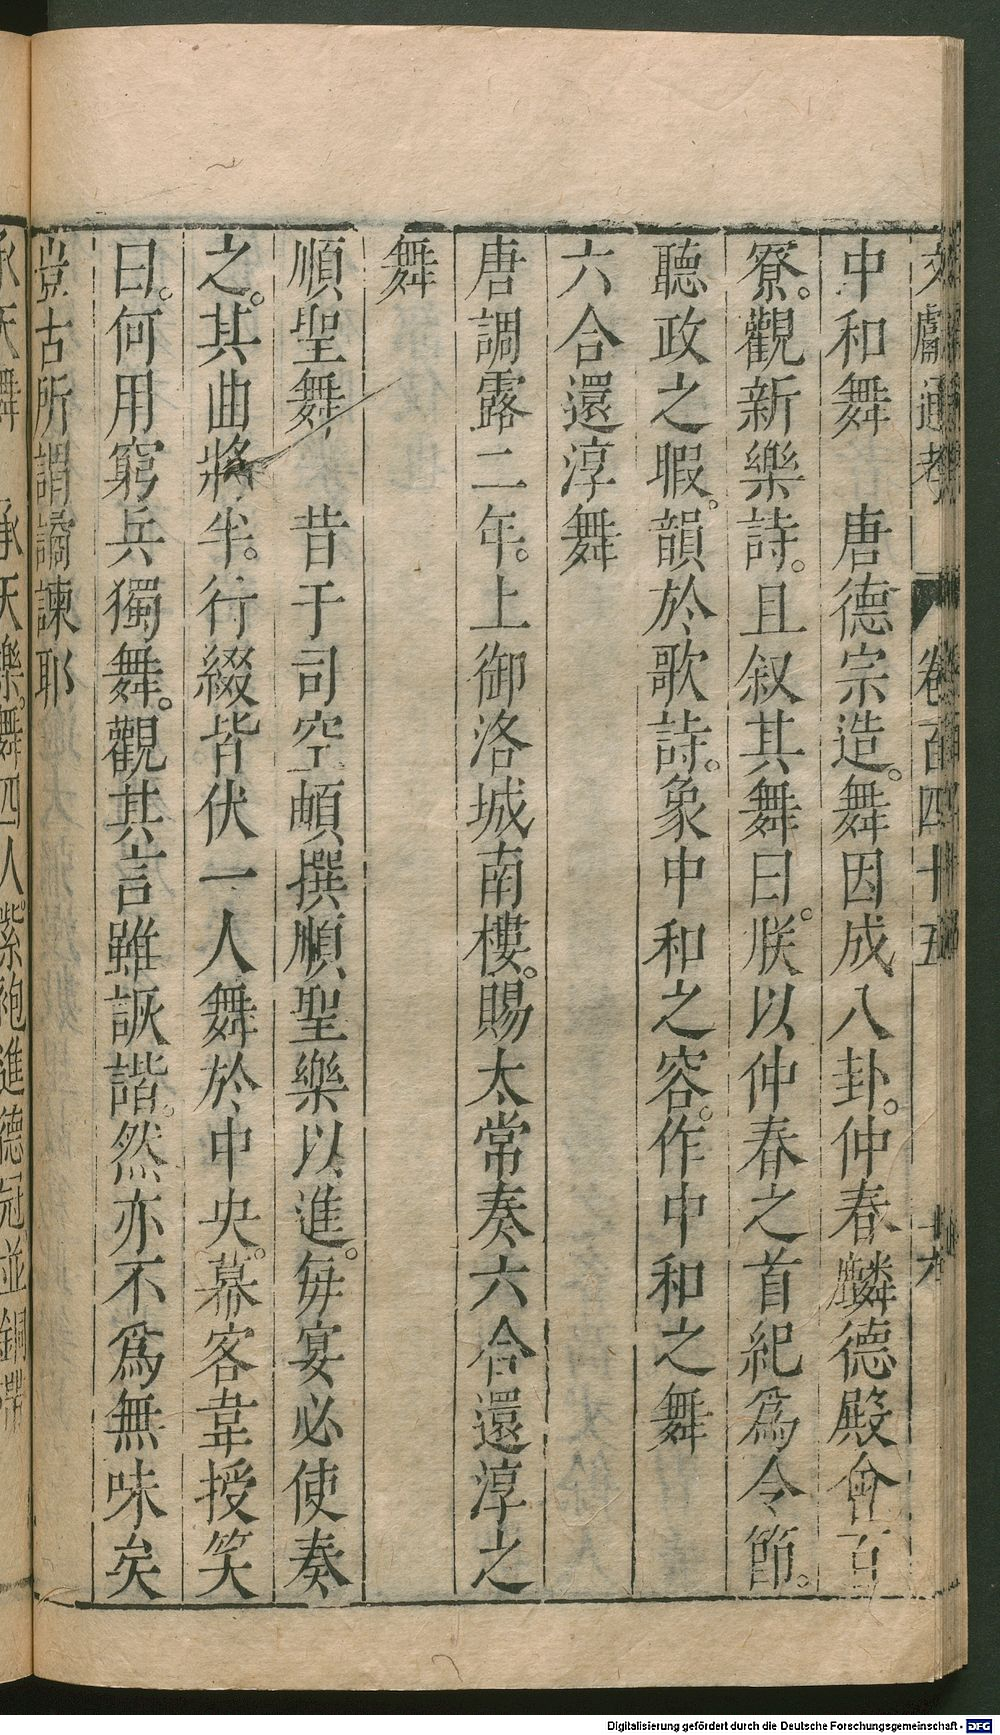 文獻通考 卷百四十五 十九
中和舞 唐德宗造。舞因成八卦。仲春麟德殿會百
寮。觀新樂詩。且叙其舞曰。朕以仲春之首紀爲令節。
聽政之暇。韻於歌詩。象中和之容。作中和之舞
六合還淳舞
唐調露二年。上御洛城南樓。賜太常奏六合還淳之
舞
順聖舞 昔于司空頔撰順聖樂以進。每宴必使奏
之。其曲將半。行綴皆伏一人舞於中央。幕客韋授笑
曰。何用窮兵獨舞。觀其言雖詼諧。然亦不爲無味矣
豈古所謂譎諫耶
承天舞 承天樂。舞四人。紫袍進德冠並銅帶
Digitalisierung gefördert durch die Deutsche Forschungsgemeinschaft - DFG